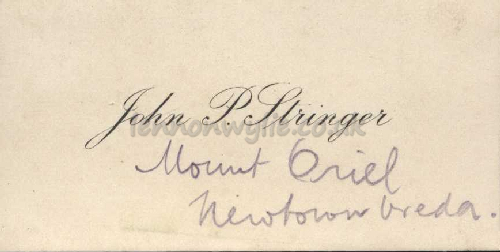 John P. Stringer
lennonwylie.co.uk
Mount Oriel
Newtownbreda.